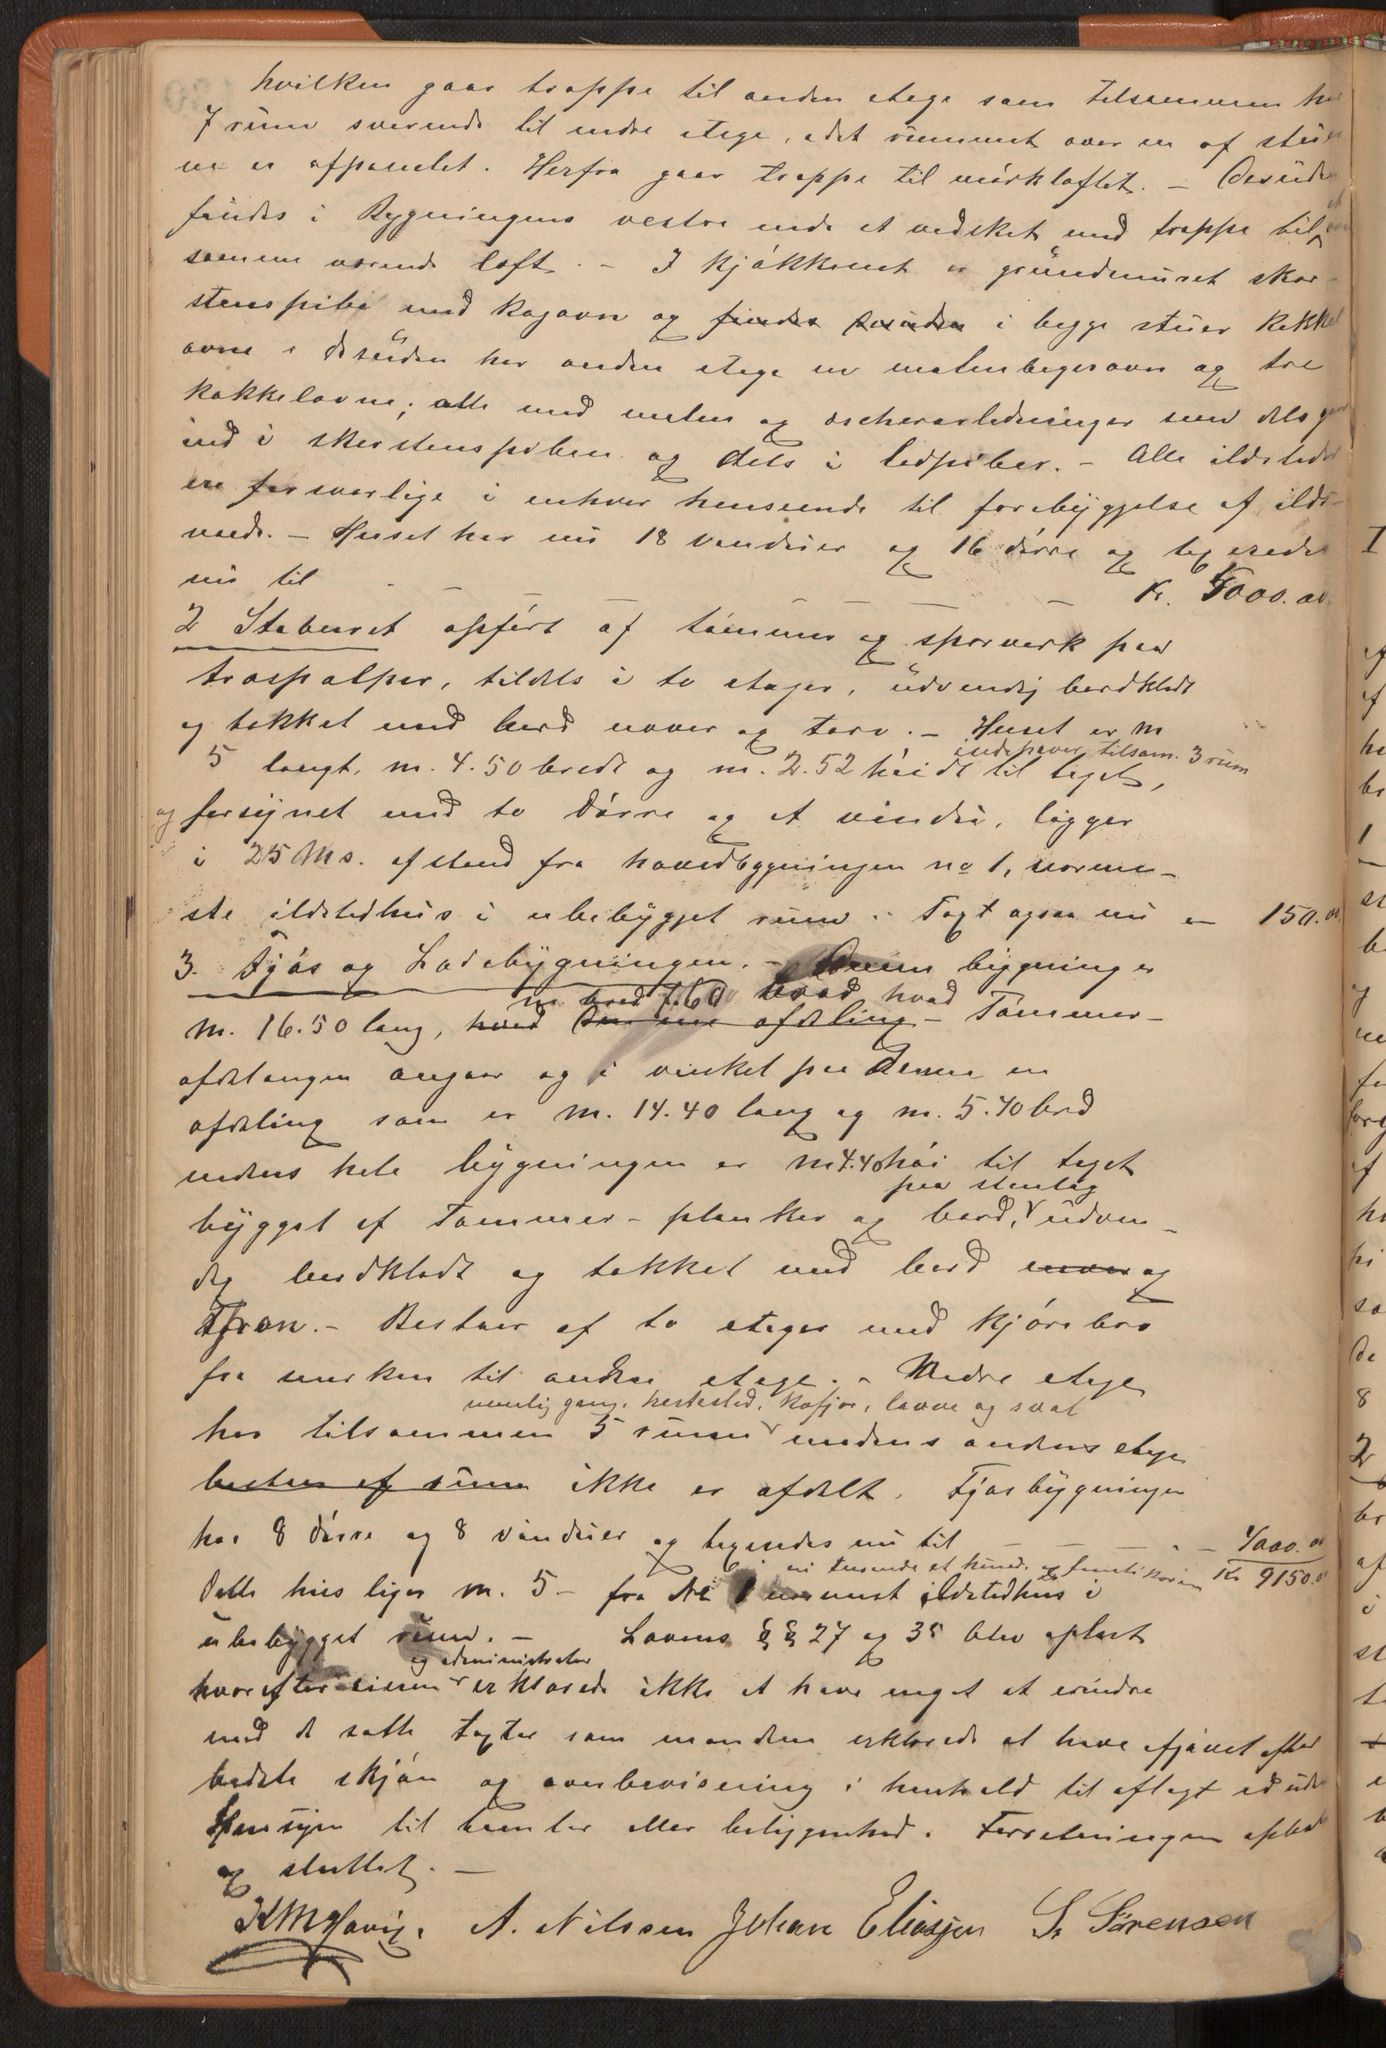 hvilken gaar trappe til anden etage som tilsammen har
7 rum svarende til nedre etage, idet rummet over en af stuer
ne er afpanelet. Herfra gaar trappe til mørkloftet. – Desuden
findes i Bygningens vestre ende et vedsket med trappe til et over
samme værende loft. – I kjøkkenet er grundmuret skor-
stenspibe med kogovn og findes desuden i begge stuer kakkel
ovne, desuden har anden etage en magasinovn og tre
kakkelovne; alle med
ind i skorstenspiben og dels i ledpiber. – Alle ildsteder
ere forsvarlige i enhver henseende til forebyggelse af ilds-
vaade. – Huset har nu 18 vinduer og 16 dørre og taxeredes
nu til – – – – – Kr. 5000.00
2 Staburet opført af tømmer og sporverk paa
træspalper, tildels i to etager, udvendig bordklædt
og tækket med bord næver og torv. – Huset er m
5 langt, m. 4.50 bredt og m. 2.52 høidt til taget, indehaver tilsam. 3 rum
og forsynet med to Dørre og et vindu, ligger
i 25 Ms. afstand fra hovedbygningen no 1, nærme-
ste ildstedhus i ubebygget rum. Taxt ogsaa nu – 150.00
3. Fjøs og Ladebygningen. – Denne bygning er
m. 16.50 lang, m bred 7.60 hvad hvad denne afdeling – Tømmer-
afdelingen angaar og i vinkel paa denne en
afdeling som er m. 14.40 lang og m. 5.40 bred
medens hele bygningen er m 4.40 høi til taget
bygget af Tømmer – planker og bord, paa stenlag udven-
dig bordklædt og tækket med bord næver og
Spon. – Bestaar af to etager med kjørebro
fra marken til anden etage. – Nedre etage
har tilsammen 5 rum nemlig gang, hestestald, kofjøs, lavve og sval medens andens etage
bestaar af rum ikke er afdelt. Fjøsbygningen
har 8 dørre og 8 vinduer og taxeredes nu til – – – – 4000.00
ni tusende et hund. og femti kroner Kr 9150.00
Dette hus ligger m. 5 – fra No 1 nærmest ildstedhus i
ubebygget rum. – Lovens §§ 27 og 35 blev oplæst
hvorefter eieren og administrator erklærede ikke at have noget at erindre
mod de satte taxter som mændene erklærede at have afgivet efter
bedste skjøn og overbevisning i henhold til aflagt ed uden
Hensyn til tomter eller beliggenhed. Forretningen oplæst
og sluttet. –
A. Nilssen Johan Eliassen S. Sørensen